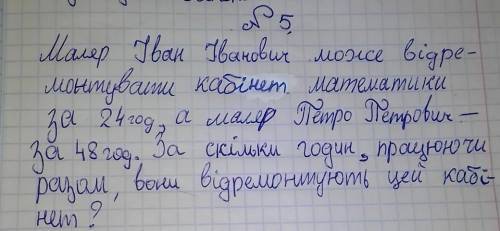 № 5.
Маляр Іван Іванович може відре-
монтувати кабінет математики
за 24 год, а маляр Петро Петрович —
за 48 год. За скільки годин, працюючи
разом, вони відремонтують цей кабі-
нет?